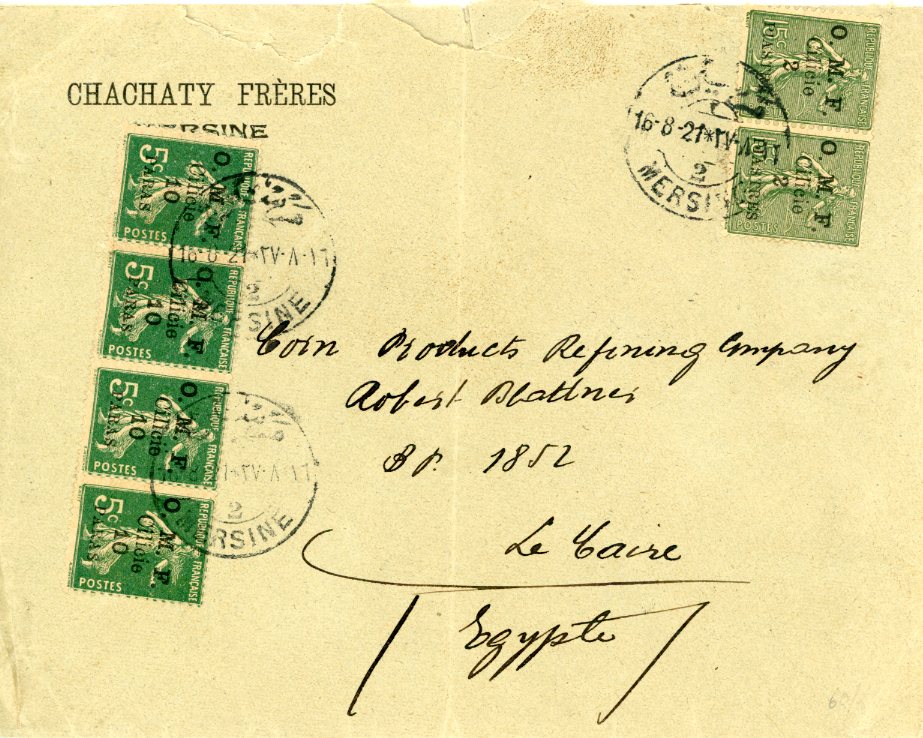 CHACHATY FRÈRES
MERSINE
RÉPUBLIQUE FRANÇAISE
15c
O. M. F.
Cilicie
2
PIASTRES
RÉPUBLIQUE FRANÇAISE
15c
O. M. F.
Cilicie
2
PIASTRES
POSTES
16-8-21*٢٧-٨-١٦
2
MERSINE
RÉPUBLIQUE FRANÇAISE
5c
O. M. F.
Cilicie
10
PARAS
POSTES
16-8-21*٢٧-٨-١٦
2
MERSINE
RÉPUBLIQUE FRANÇAISE
5c
O. M. F.
Cilicie
10
PARAS
POSTES
RÉPUBLIQUE FRANÇAISE
5c
O. M. F.
Cilicie
10
PARAS
POSTES
16-8-21*٢٧-٨-١٦
2
MERSINE
RÉPUBLIQUE FRANÇAISE
5c
O. M. F.
Cilicie
10
PARAS
POSTES
Corn Products Refining Company
Robert Blattner
B P. 1852
Le Caire
Egypte